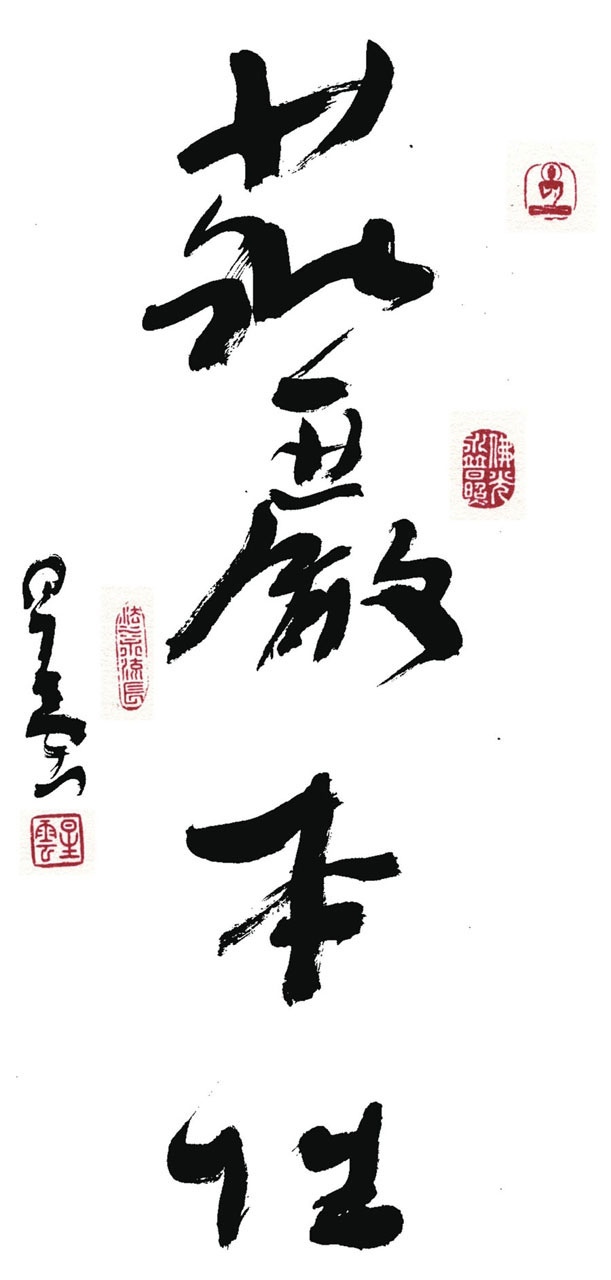 莊嚴本性
佛光
永普照
法水流長
星雲
星雲